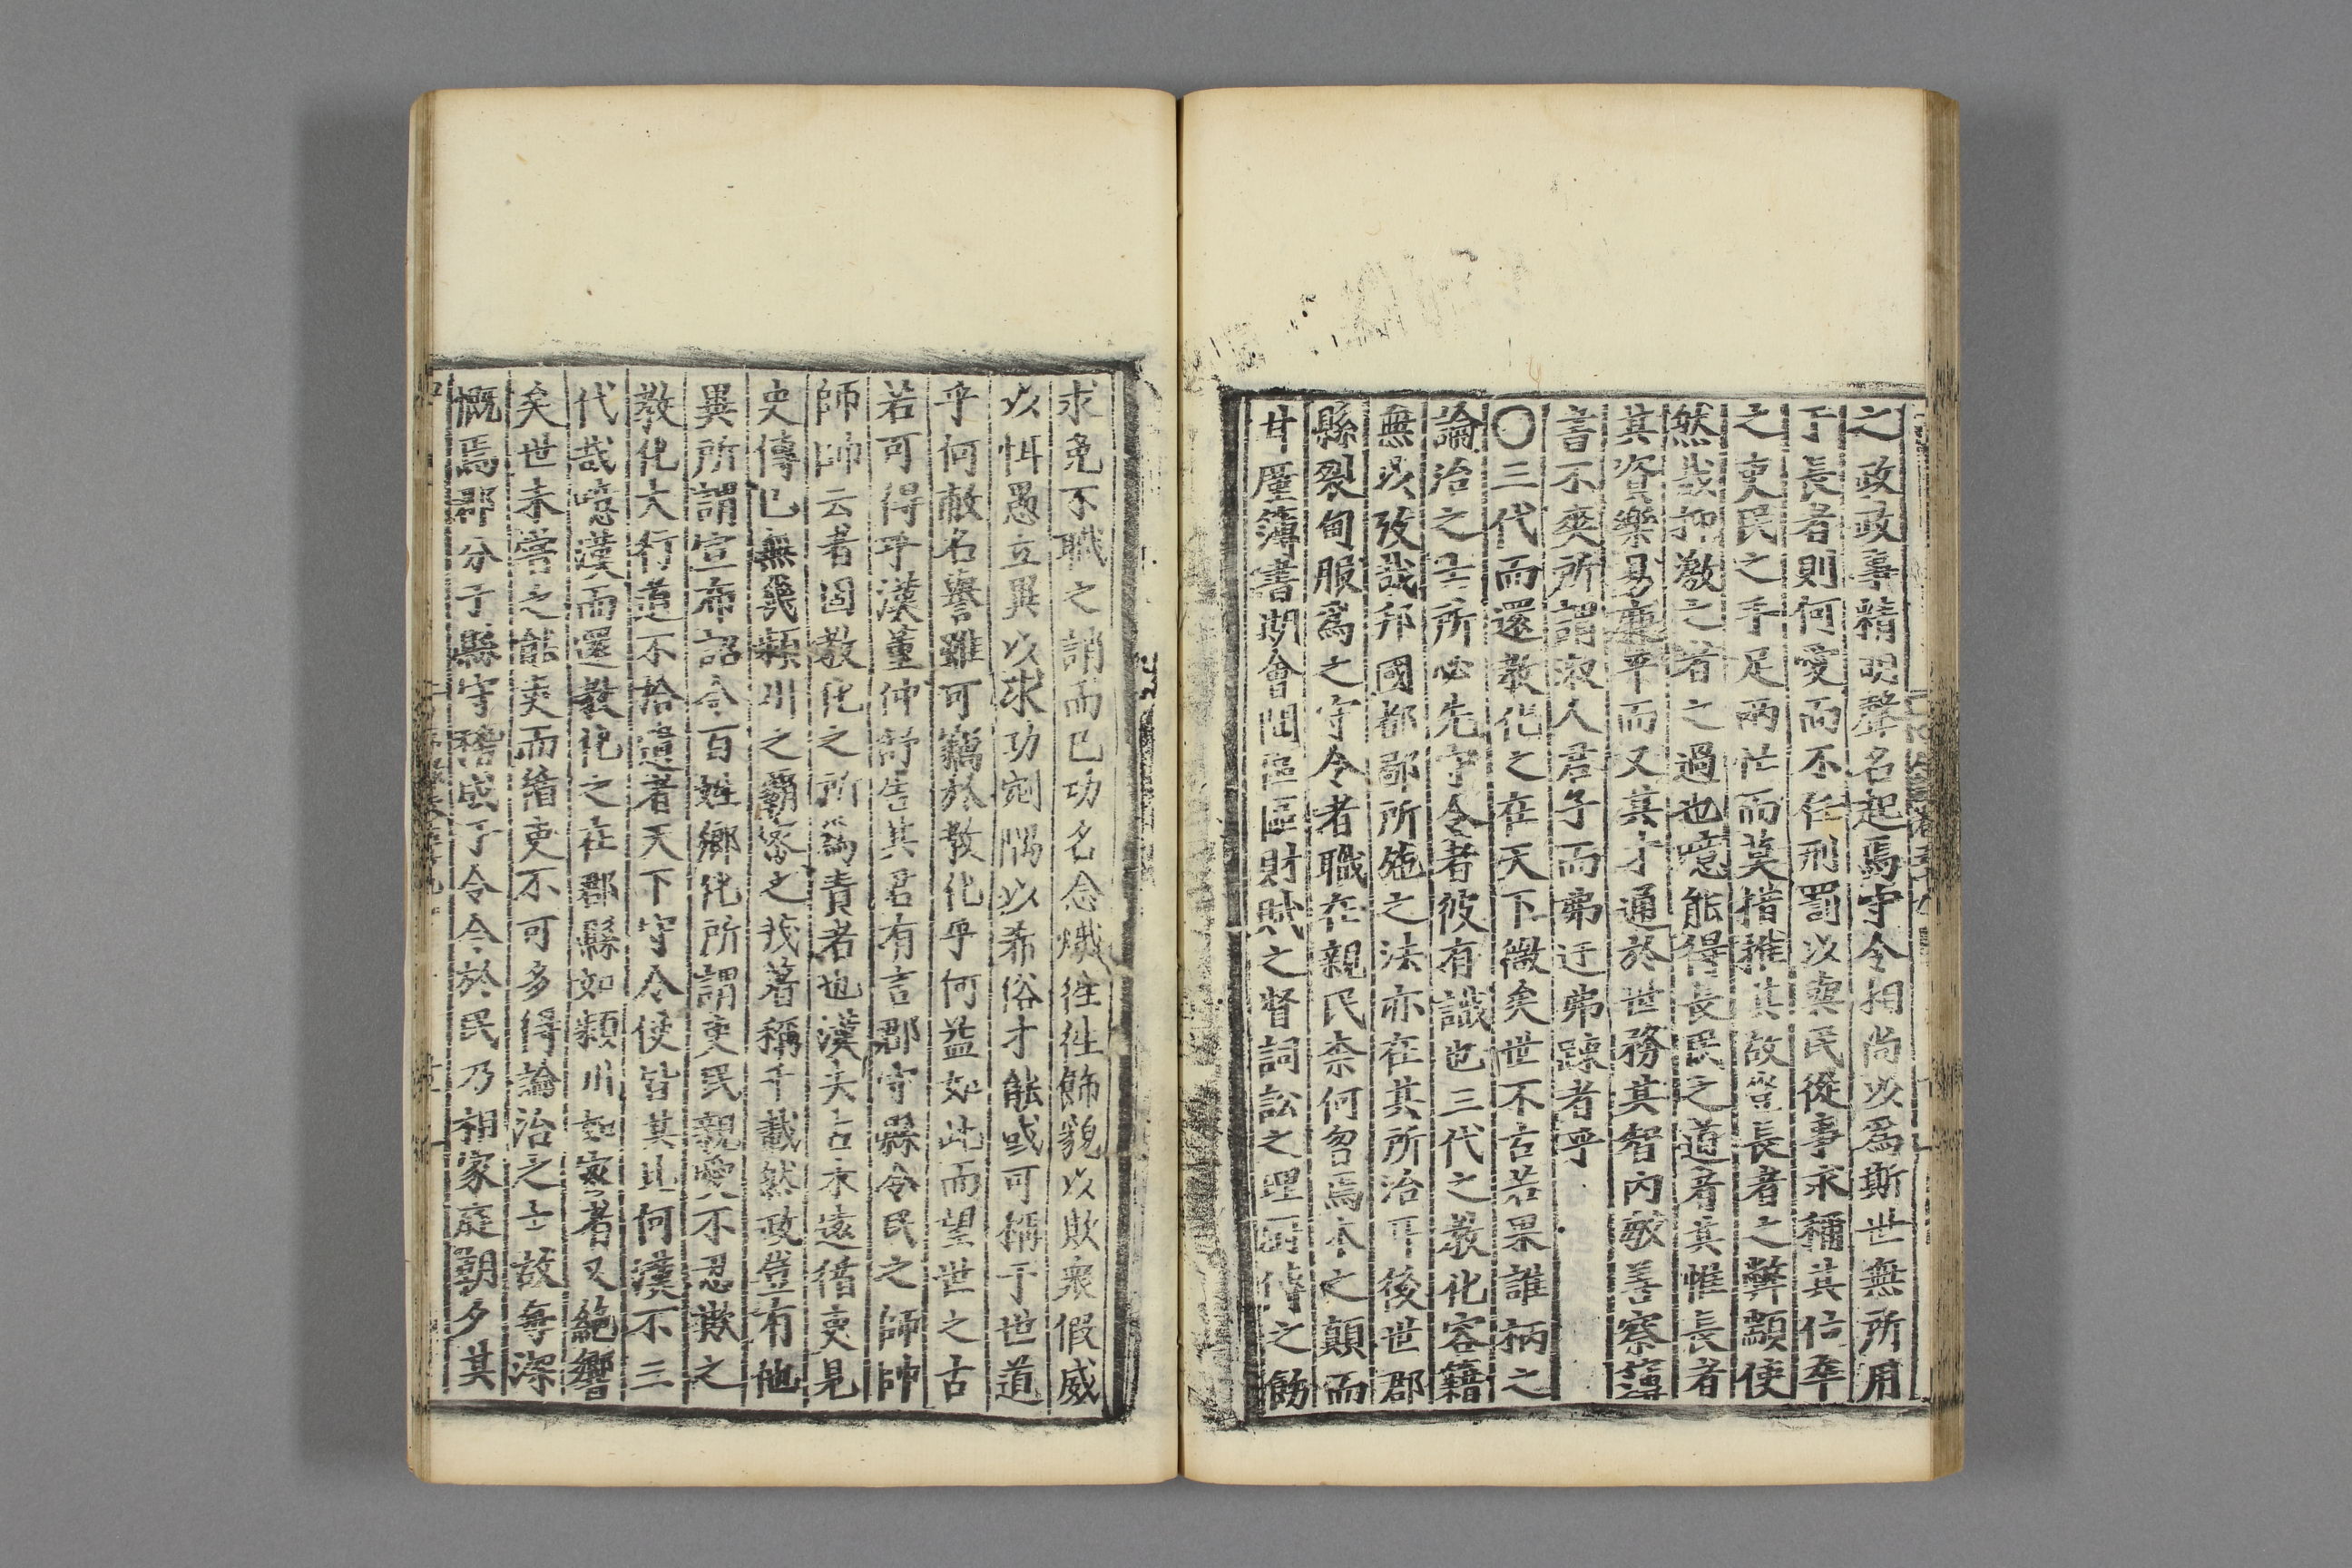 之政政事精明聲名起焉守令相尚以爲斯世無所用
于長者則何愛而不任刑罰以察民從事求稱其信率
之吏民之手足兩忙而莫措推其故豈長者之弊顛使
然哉抑激之者之過也噫能得長民之道者其惟長者
其資樂易廉平而又其才通於世務其智內敏善察
言不爽所謂淑人君子而弗迂弗踈者乎
〇三代而還教化之在天下微矣世不古若果誰柄之
論治之士所必先守令者彼有識也三代之教化容籍
無以攷哉邦國都鄙所施之法亦在其所治耳後世郡
縣裂甸服爲之守令者職在親民柰何忽焉本之顛而
甘廑簿書期會間區區財賦之督詞訟之理厨傳之飭
求免不職之誚而已功名念熾徃徃飾貌以欺衆假威
以恫愚立異以求功宛隅以希俗才能或可稱于世道
乎何敝名譽雖可竊於教化乎何益如此而望世之古
若可得乎漢董仲舒告其君有言郡守縣令民之師帥
師帥云者固教化之所爲責者也漢去古未遠循吏見
史傳已無幾潁川之霸密之茂著稱千載然政豈有他
異所謂宣布詔令百姓鄉化所謂吏民親愛不忍欺之
教化大行道不拾遺者天下守令使皆其比何漢不三
代哉噫漢而還教化之在郡縣如潁川如密者又絕響
矣世未嘗之能吏而循吏不可多得論治之士故每深
慨焉郡分于縣守稽成于令令於民乃相家庭朝夕其